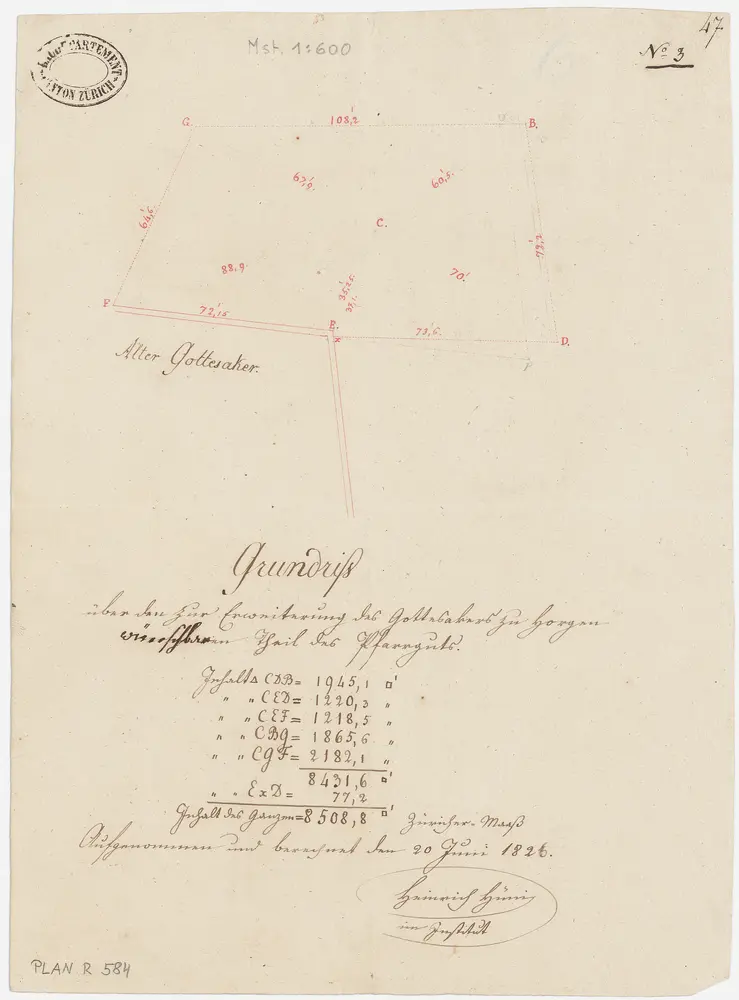 47
Mst. 1:600
No 3
KANTON ZÜRICH
G.
108,2
B.
67,9.
60,5.
64,6
C.
72,2
88,9
35,25
37,1.
70
F
72,15
E.
x
73,6.
D.
Alter Gottesaker.
Grundriß
über den zur Erweiterung des Gottesakers zu Horgen
wünschbaren Theil des Pfarrguts.
Inhalt Δ CDB = 1945,1 □'
" " CED = 1220,3 "
" " CEF = 1218,5 "
" " CBG = 1865,6 "
" " CGF = 2182,1 "
8431,6 □'
" " ExD = 77,2
Inhalt des Ganzen = 8508,8 □' Züricher-Maaß
Aufgenommen und berechnet den 20 Juni 1826.
Heinrich Hüni
im Institut
PLAN R 584